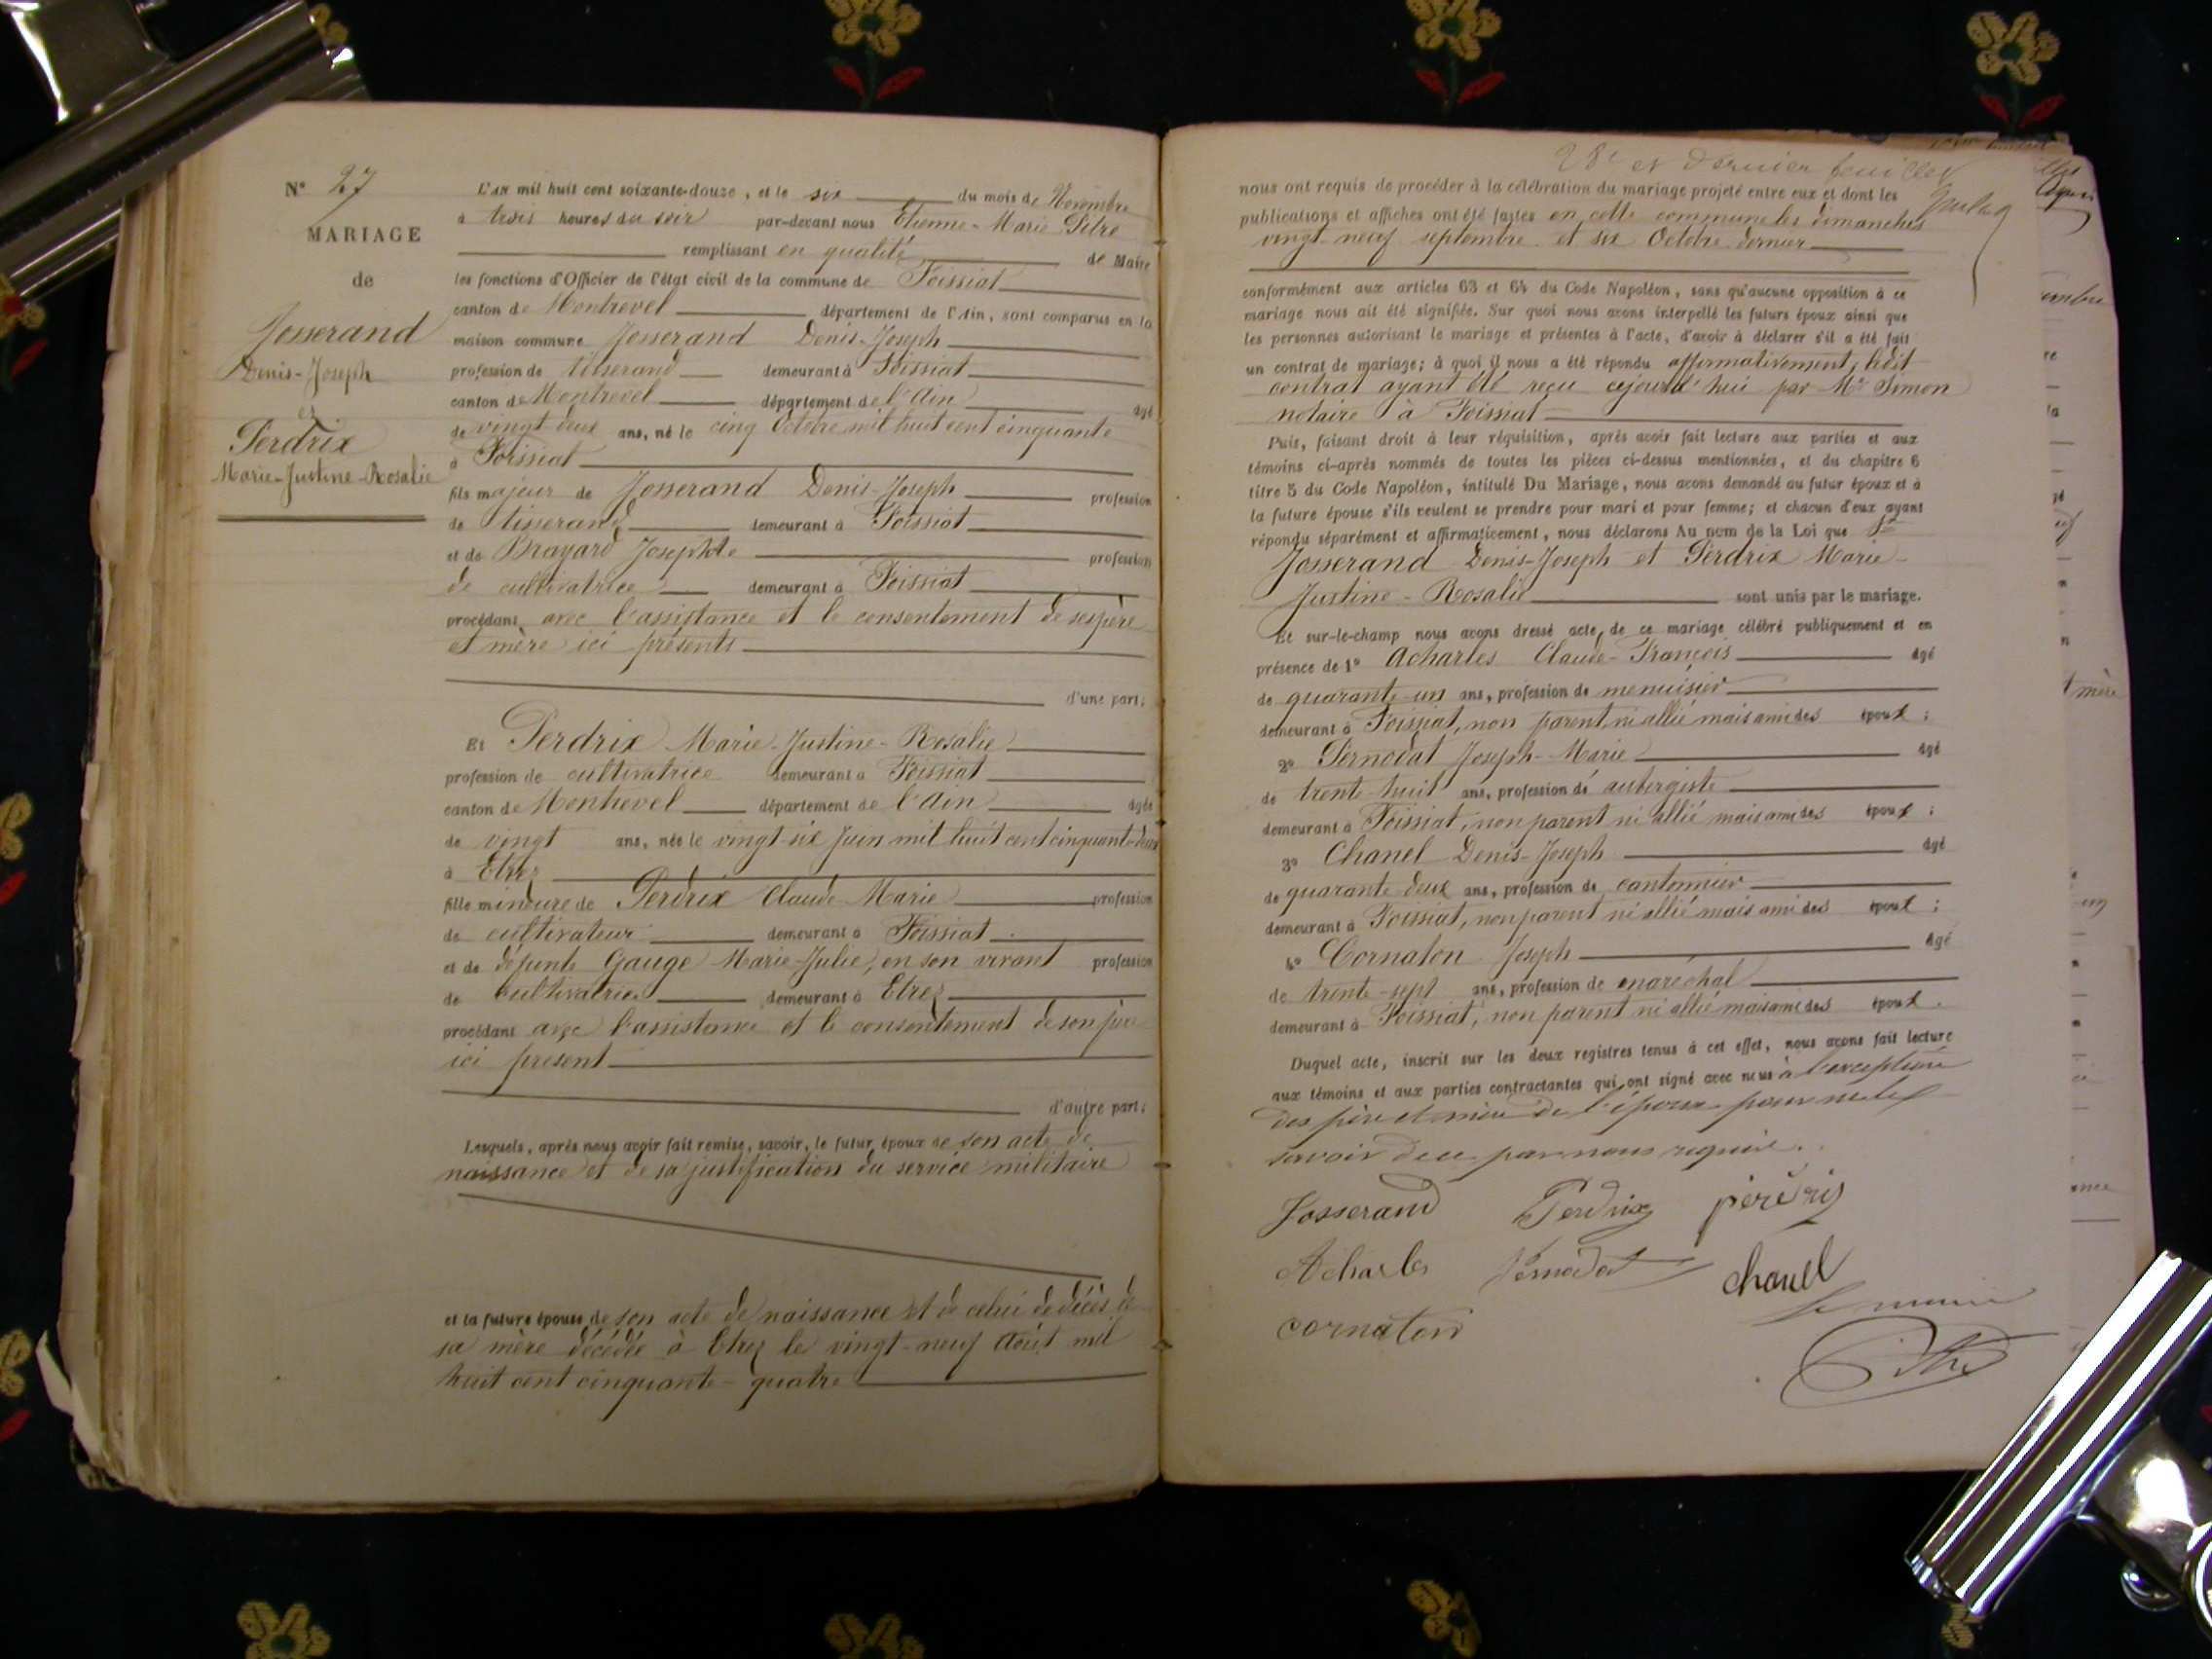 N° 27
MARIAGE
de
Josserand
Denis-Joseph
et
Perdrix
Marie-Justine-Rosalie
L'an mil huit cent soixante-douze, et le six du mois de Novembre
à trois heures du soir par-devant nous Etienne-Marie Pitre
remplissant en qualité de Maire
les fonctions d'Officier de l'état civil de la commune de Foissiat
canton de Montrevel département de l'Ain, sont comparus en la
maison commune Josserand Denis-Joseph
profession de tisserand demeurant à Foissiat
canton de Montrevel département de l'Ain âgé
de vingt deux ans, né le cinq Octobre mil huit cent cinquante
à Foissiat
fils majeur de Josserand Denis-Joseph profession
de tisserand demeurant à Foissiat
et de Brayard Josephte profession
de cultivatrice demeurant à Foissiat
procédant avec l'assistance et le consentement de ses père
et mère ici présents
d'une part;
Et Perdrix Marie-Justine-Rosalie
profession de cultivatrice demeurant à Foissiat
canton de Montrevel département de l'Ain âgée
de vingt ans, née le vingt-six Juin mil huit cent cinquante-deux
à Etrez
fille mineure de Perdrix Claude-Marie profession
de cultivateur demeurant à Foissiat
et de défunte Gauge Marie-Julie, en son vivant profession
de cultivatrice demeurant à Etrez
procédant avec l'assistance et le consentement de son père
ici présent
d'autre part;
Lesquels, après nous avoir fait remise, savoir, le futur époux de son acte de
naissance et de sa justification du service militaire
et la future épouse de son acte de naissance et de celui de décès de
sa mère décédée à Etrez le vingt-neuf Août mil
huit cent cinquante-quatre
28e et dernier feuillet
nous ont requis de procéder à la célébration du mariage projeté entre eux et dont les
publications et affiches ont été faites en cette commune les dimanches
vingt-neuf septembre et six Octobre dernier
conformément aux articles 63 et 64 du Code Napoléon, sans qu'aucune opposition à ce
mariage nous ait été signifiée. Sur quoi nous avons interpellé les futurs époux ainsi que
les personnes autorisant le mariage et présentes à l'acte, d'avoir à déclarer s'il a été fait
un contrat de mariage; à quoi il nous a été répondu affirmativement, ledit
contrat ayant été reçu cejourd'hui par Me Simon
notaire à Foissiat
Puis, faisant droit à leur réquisition, après avoir fait lecture aux parties et aux
témoins ci-après nommés de toutes les pièces ci-dessus mentionnées, et du chapitre 6
titre 5 du Code Napoléon, intitulé Du Mariage, nous avons demandé au futur époux et à
la future épouse s'ils veulent se prendre pour mari et pour femme; et chacun d'eux ayant
répondu séparément et affirmativement, nous déclarons Au nom de la Loi que
Josserand Denis-Joseph et Perdrix Marie-
Justine-Rosalie sont unis par le mariage.
Et sur-le-champ nous avons dressé acte de ce mariage célébré publiquement et en
présence de 1° Acharles Claude-François âgé
de quarante-un ans, profession de menuisier
demeurant à Foissiat, non parent ni allié mais ami des époux;
2° Pernodat Joseph-Marie âgé
de trente-huit ans, profession de aubergiste
demeurant à Foissiat, non parent ni allié mais ami des époux;
3° Chanel Denis-Joseph âgé
de quarante-deux ans, profession de cantonnier
demeurant à Foissiat, non parent ni allié mais ami des époux;
4° Cornaton Joseph âgé
de trente-sept ans, profession de maréchal
demeurant à Foissiat, non parent ni allié mais ami des époux.
Duquel acte, inscrit sur les deux registres tenus à cet effet, nous avons fait lecture
aux témoins et aux parties contractantes qui ont signé avec nous à l'exception
des père et mère de l'époux pour ne le
savoir de ce par nous requis.
Josserand Perdrix perdrix
Acharles Pernodat chanel
cornaton le maire
Pitre